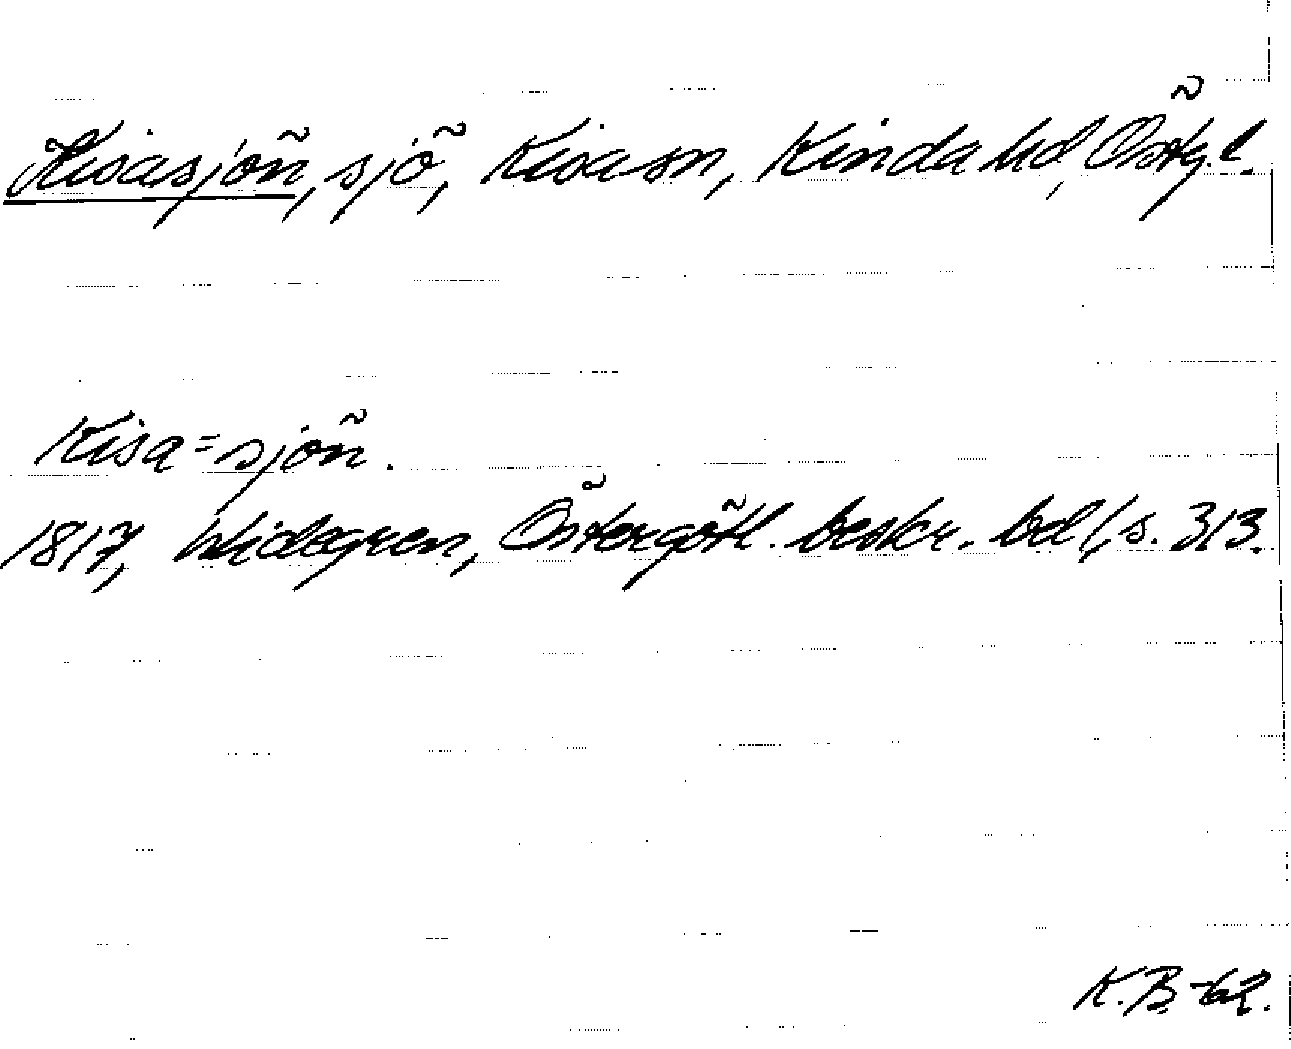 Kisasjön, sjö, Kisa sn, Kinda hd, Östg. l.
Kisa=sjön.
1817, Widegren, Östergötl. beskr. bd 1, s. 313.
K.B. -62.